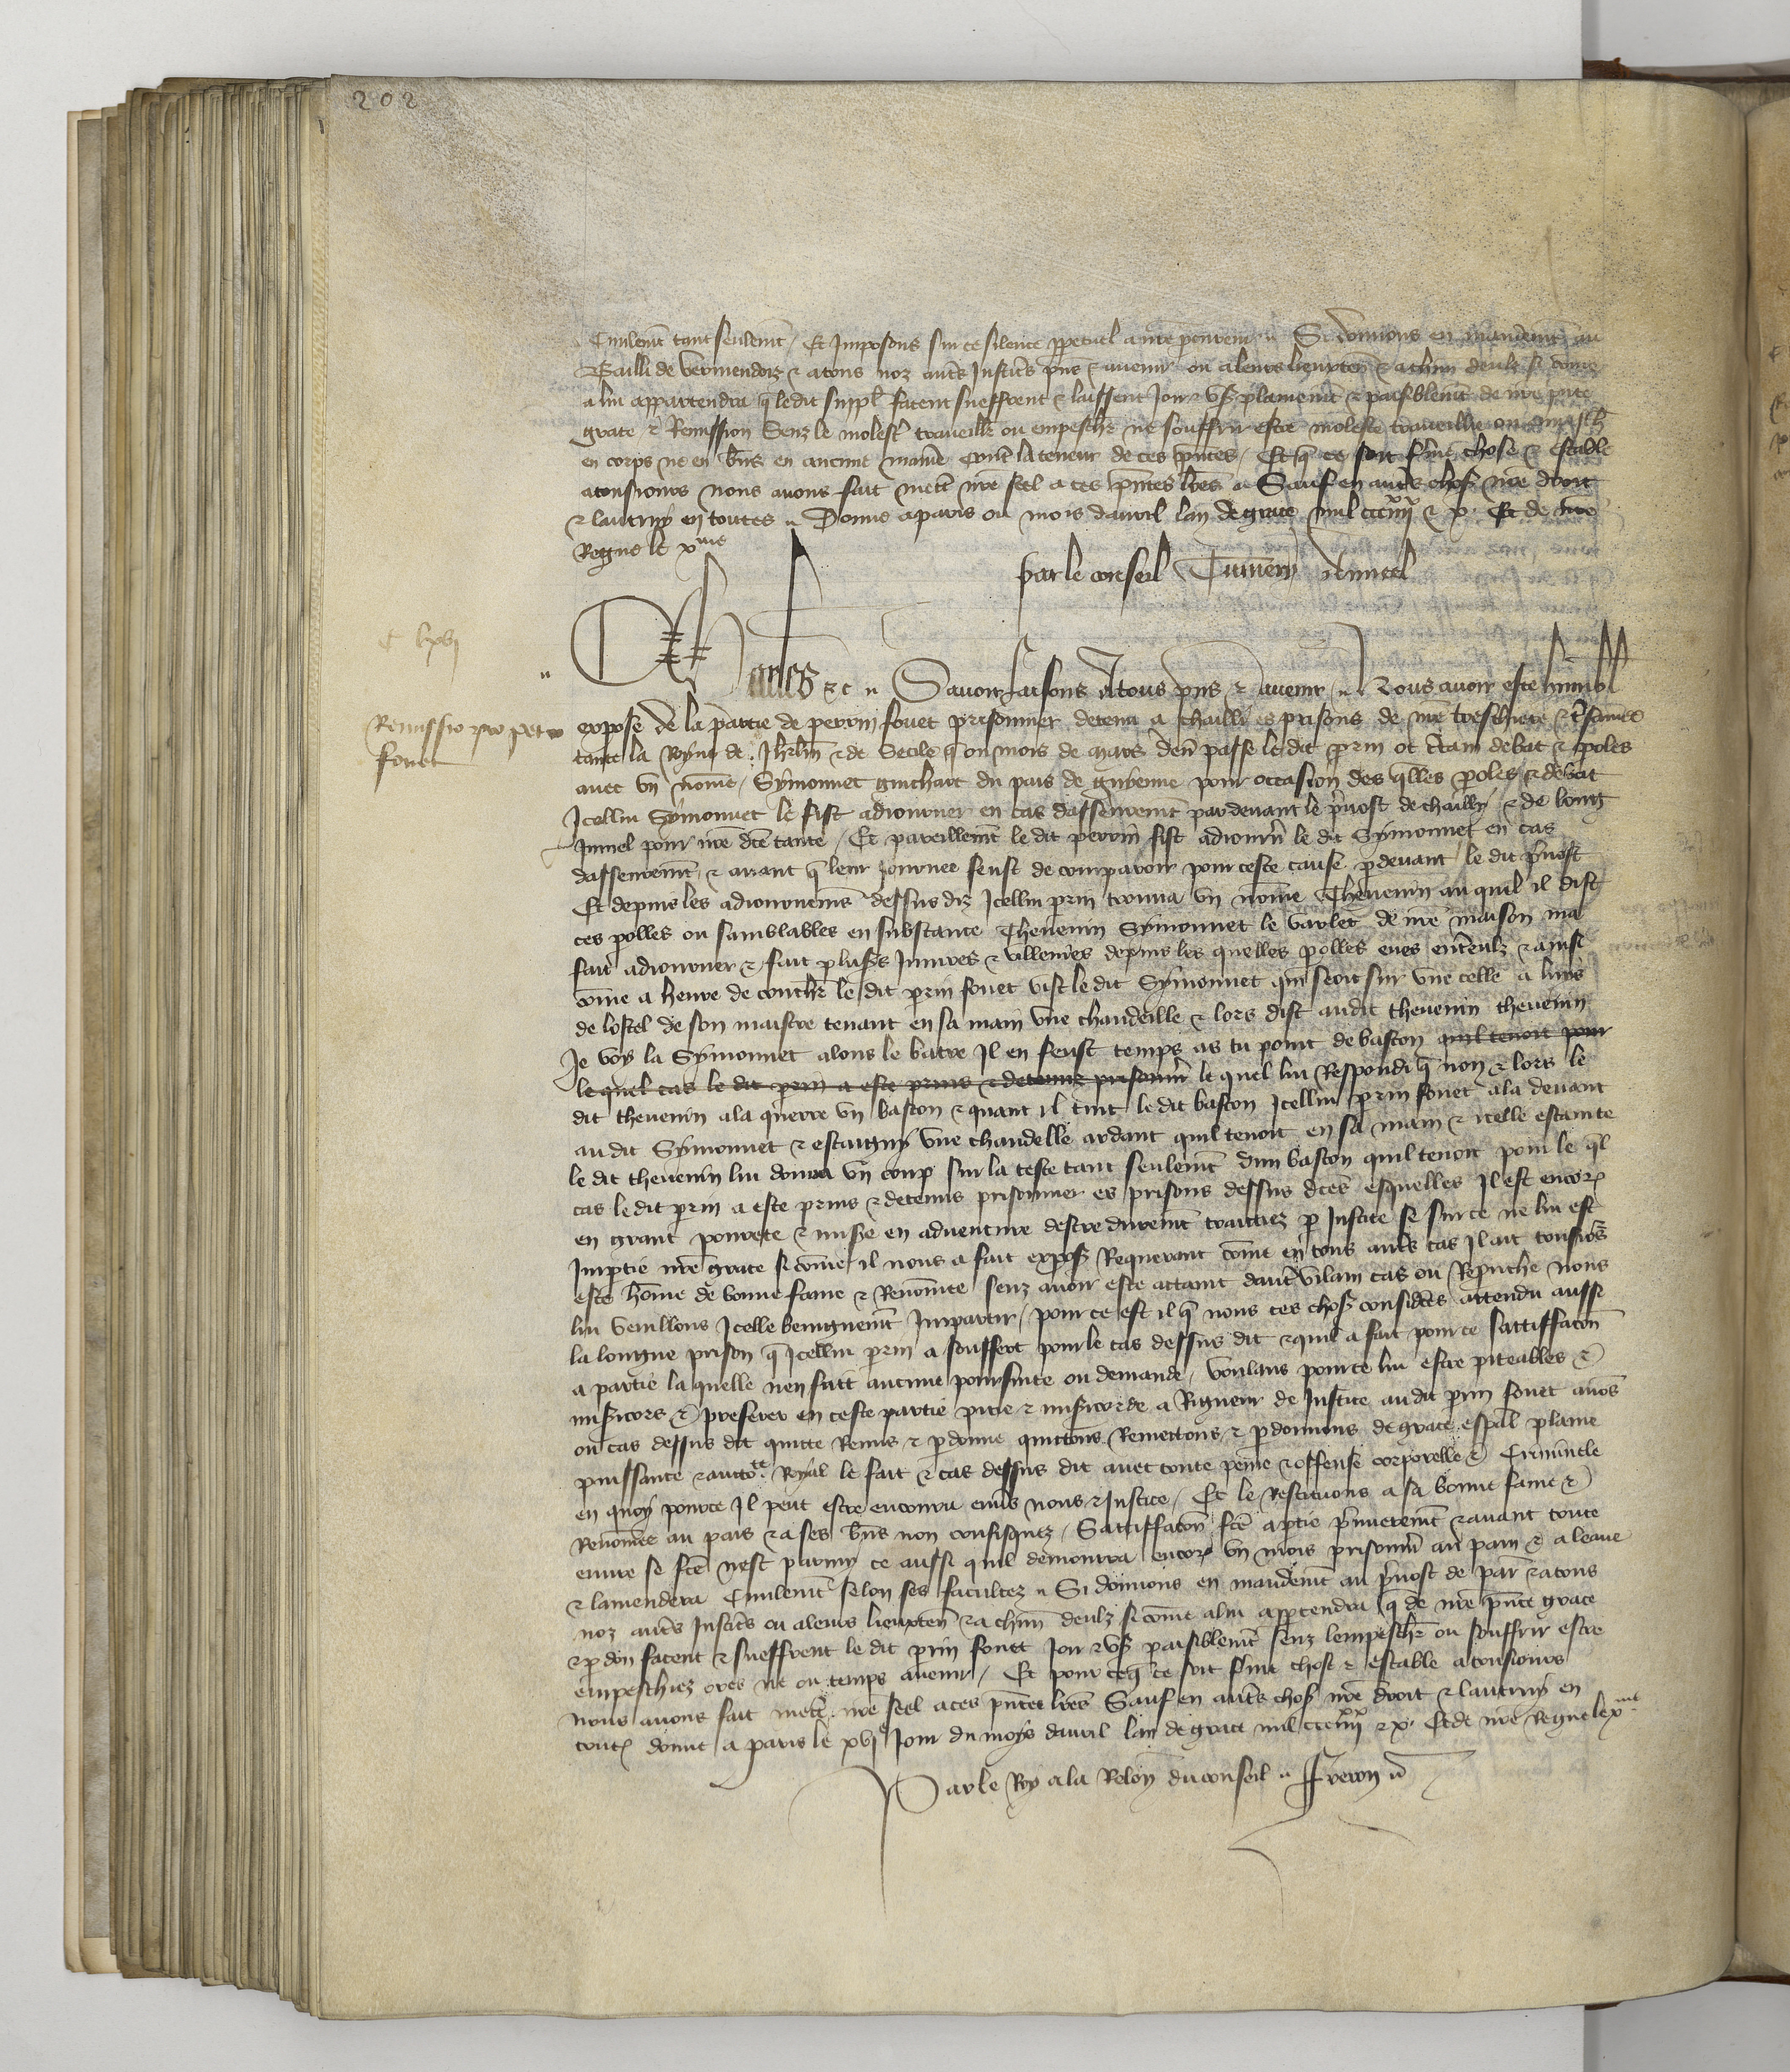 202
Civilemēt tant seulemēt / Et Imposons sur ce silence ꝑpetuel a nr̄e ꝓcureur Si donnons en mandemēt au
Bailli de vermendoiz & a tous noz aut̄s Justic̄s p̄ns & avenir ou a leurs lieuxten̄ & a chūn deulz si cōme
a lui appartendra q̄ le dit suppl̄ facent sueffrent & laissent Joir & usꝰ plainemēt & paisiblemēt de nr̄e p̄nte
grace & Remission Senz le molestꝰ travaillꝰ ou empeschꝰ ne souffrir estre moleste travaillie ou empesch̄
en corps ne en bn̄s en aucune maniē cont̄ la teneur de ces p̄ntes / Et q̄ ce soit ferme chose & estable
a tousiours nous avons fait mett̄ nr̄e seel a ces p̄ntes lr̄es Sauf en aut̄s chosꝭ nr̄e droit
& lautruy en toutes Donne a paris ou mois davril lan de grace mil ccc iiii xx & x. Et de nr̄e
Regne le xme
par le conseil
C lxvi
Charles &c Savoir faisons A tous p̄ns & avenir Nous avoir este humbl̄
Remissio pro petro
fouet
expose de la partie de perrin fouet prisonnier detenu a chailli es prisons de nr̄e treschiere & t̄samee
tante la Royne de Jhrl̄m & de Secile q̄ ou mois de mars den̄ passe le dit ꝑrin ot c̄tain debat & ꝑoles
avec un nōme Symonnet guichart du pais de guienne pour occasion des q̄lles ꝑoles & debat
Icellui Symonnet le fist adiourner en cas dasseuremēt par devant le p̄vost de chailly & de long
Jumel pour nr̄e dc̄e tante / Et pareillemēt le dit perrin fist adiourn̄ le dit Symonnet en cas
dasseuremēt & avant q̄ leur journee feust de comparoir pour ceste cause ꝑdevant le dit p̄vost
Et depuis les adiournemēs dessus diz Icellui ꝑrin trouva un nōme Thevenin au quil il dist
ces ꝑolles ou samblables en substance Thevenin Symonnet le varlet de nr̄e maison ma
fait adiourner & fait plusꝰs Iniures & villenies depuis les quelles ꝑolles eues ent̄eulz & ainsi
cōme a heure de couchꝰ le dit ꝑrin fouet vist le dit Symonnet qui seoit sur une celle a luis
de lostel de son maistre tenant en sa main une chandeille & lors dist audit thevenin thevenin
Je voy la Symonnet alons le batre Il en feust temps as tu point de baston quil tenoit pour
le quel cas le dit ꝑrin a este prins & detenuz prisonn̄ le quel lui Respondi q̄ non & lors le
dit thevenin ala querre un baston & quant il tint le dit baston Icellui ꝑrin fouet ala devant
au dit Symonnet & estaigny une chandelle ardant quil tenoit en sa main & icelle estainte
le dit thevenin lui donna un coup sur la teste tant seulemēt dun baston quil tenoit pour le q̄l
cas le dit ꝑrin a este prins & detenus prisonnier es prisons dessus dc̄es esquelles Il est encorꝭ
en grant povrete & misꝰe en adventure destre duremēt traictiez ꝑ Justice se sur ce ne lui est
Imꝑtie nr̄e grace si cōme il nous a fait exposꝰ Requerant cōme en tous aut̄s cas Il ait tousiours
este hōme de bonne fame & Renōmee senz avoir este attaint daut̄ vilain cas ou Reprouche nous
lui veuillons Icelle benignemēt Impartir / pour ce est il q̄ nous ces chosꝭ considc̄es attendu aussi
la longue prison q̄ Icellui ꝑrin a souffert pour le cas dessus dit & quil a fait pour ce sattiffacōn
a partie la quelle nen fait aucune poursuite ou demande / voulans pour ce lui estre piteables &
misꝰicors & preferer en ceste partie pitie & misꝰicorde a Rigueur de Justice au dit ꝑrin fouet avōs
ou cas dessus dit quitte Remis & ꝑdonne quittons Remettons & ꝑdonnons de grace esp̄al plaine
puissance & auctorite Royal le fait & cas dessus dit avec toute peine & offense corporelle & Criminele
en quoy pource Il peut estre encouru env̄s nous & Justice / Et le Restituons a sa bonne fame &
Renōmee au pais & a ses bn̄s non confisquez / Sattiffacōn fc̄e a ꝑtie p̄mieremēt & avant toute
euvre se fc̄e nest parmy ce aussi quil demourra encorꝭ un mois prisonn̄ au pain & a leaue
& lamendera Civilemēt selon ses facultez Si donnons en mandemēt au p̄vost de par̄ & a tous
noz aut̄s Justic̄s ou a leurs lieuxten̄ & a chūn deulz si cōme a lui appꝑtendra q̄ de nr̄e p̄nte grace
& ꝑdon facent & sueffrent le dit ꝑrin fouet Joir & usꝰ paisiblemēt senz lempeschꝰ ou souffrir estre
empeschiez ores ne ou temps avenir / Et pour ce q̄ ce soit ferme chose & estable a tousiours
nous avons fait mett̄ nr̄e seel a ces p̄ntes lr̄es Sauf en aut̄s chosꝭ nr̄e droit & lautruy en
toutꝭ donne a paris le xvie Jour du moys davril lan de grace mil ccc iiii xx & x. Et de nr̄e Regne le xme
Par le Roy a la Relōn du conseil Freron